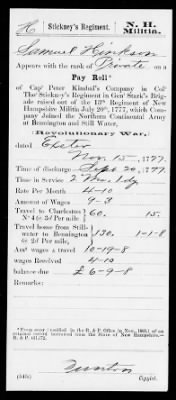 H | Stickney's Regiment. | N. H. Militia.
Samuel Hinkson
Appears with the rank of Private on a
Pay Roll*
of Cap' Peter Kimbal's Company in Col°
Tho' Stickney's Regiment in Gen' Stark's Brig-
ade raised out of the 13th Regiment of New
Hampshire Militia July 20th, 1777, which Com-
pany Joined the Northern Continental Army
at Bennington and Still Water,
Revolutionary War,
dated Exeter
Nov. 15, 1777.
Time of discharge Sept 20, 1777.
Time in Service 2 Mos. 1 dy
Rate Per Month 4-10
Amount of Wages 9-3
Travel to Charleston 60. 15.
N° 4 @ 3d Per mile
Travel home from Still-
water to Bennington 130. 1-1-8
@ 2d Per mile,
Am' wages & travel 10-19-8
wages Received 4-10
balance due £ 6-9-8
Remarks:
Copyist.